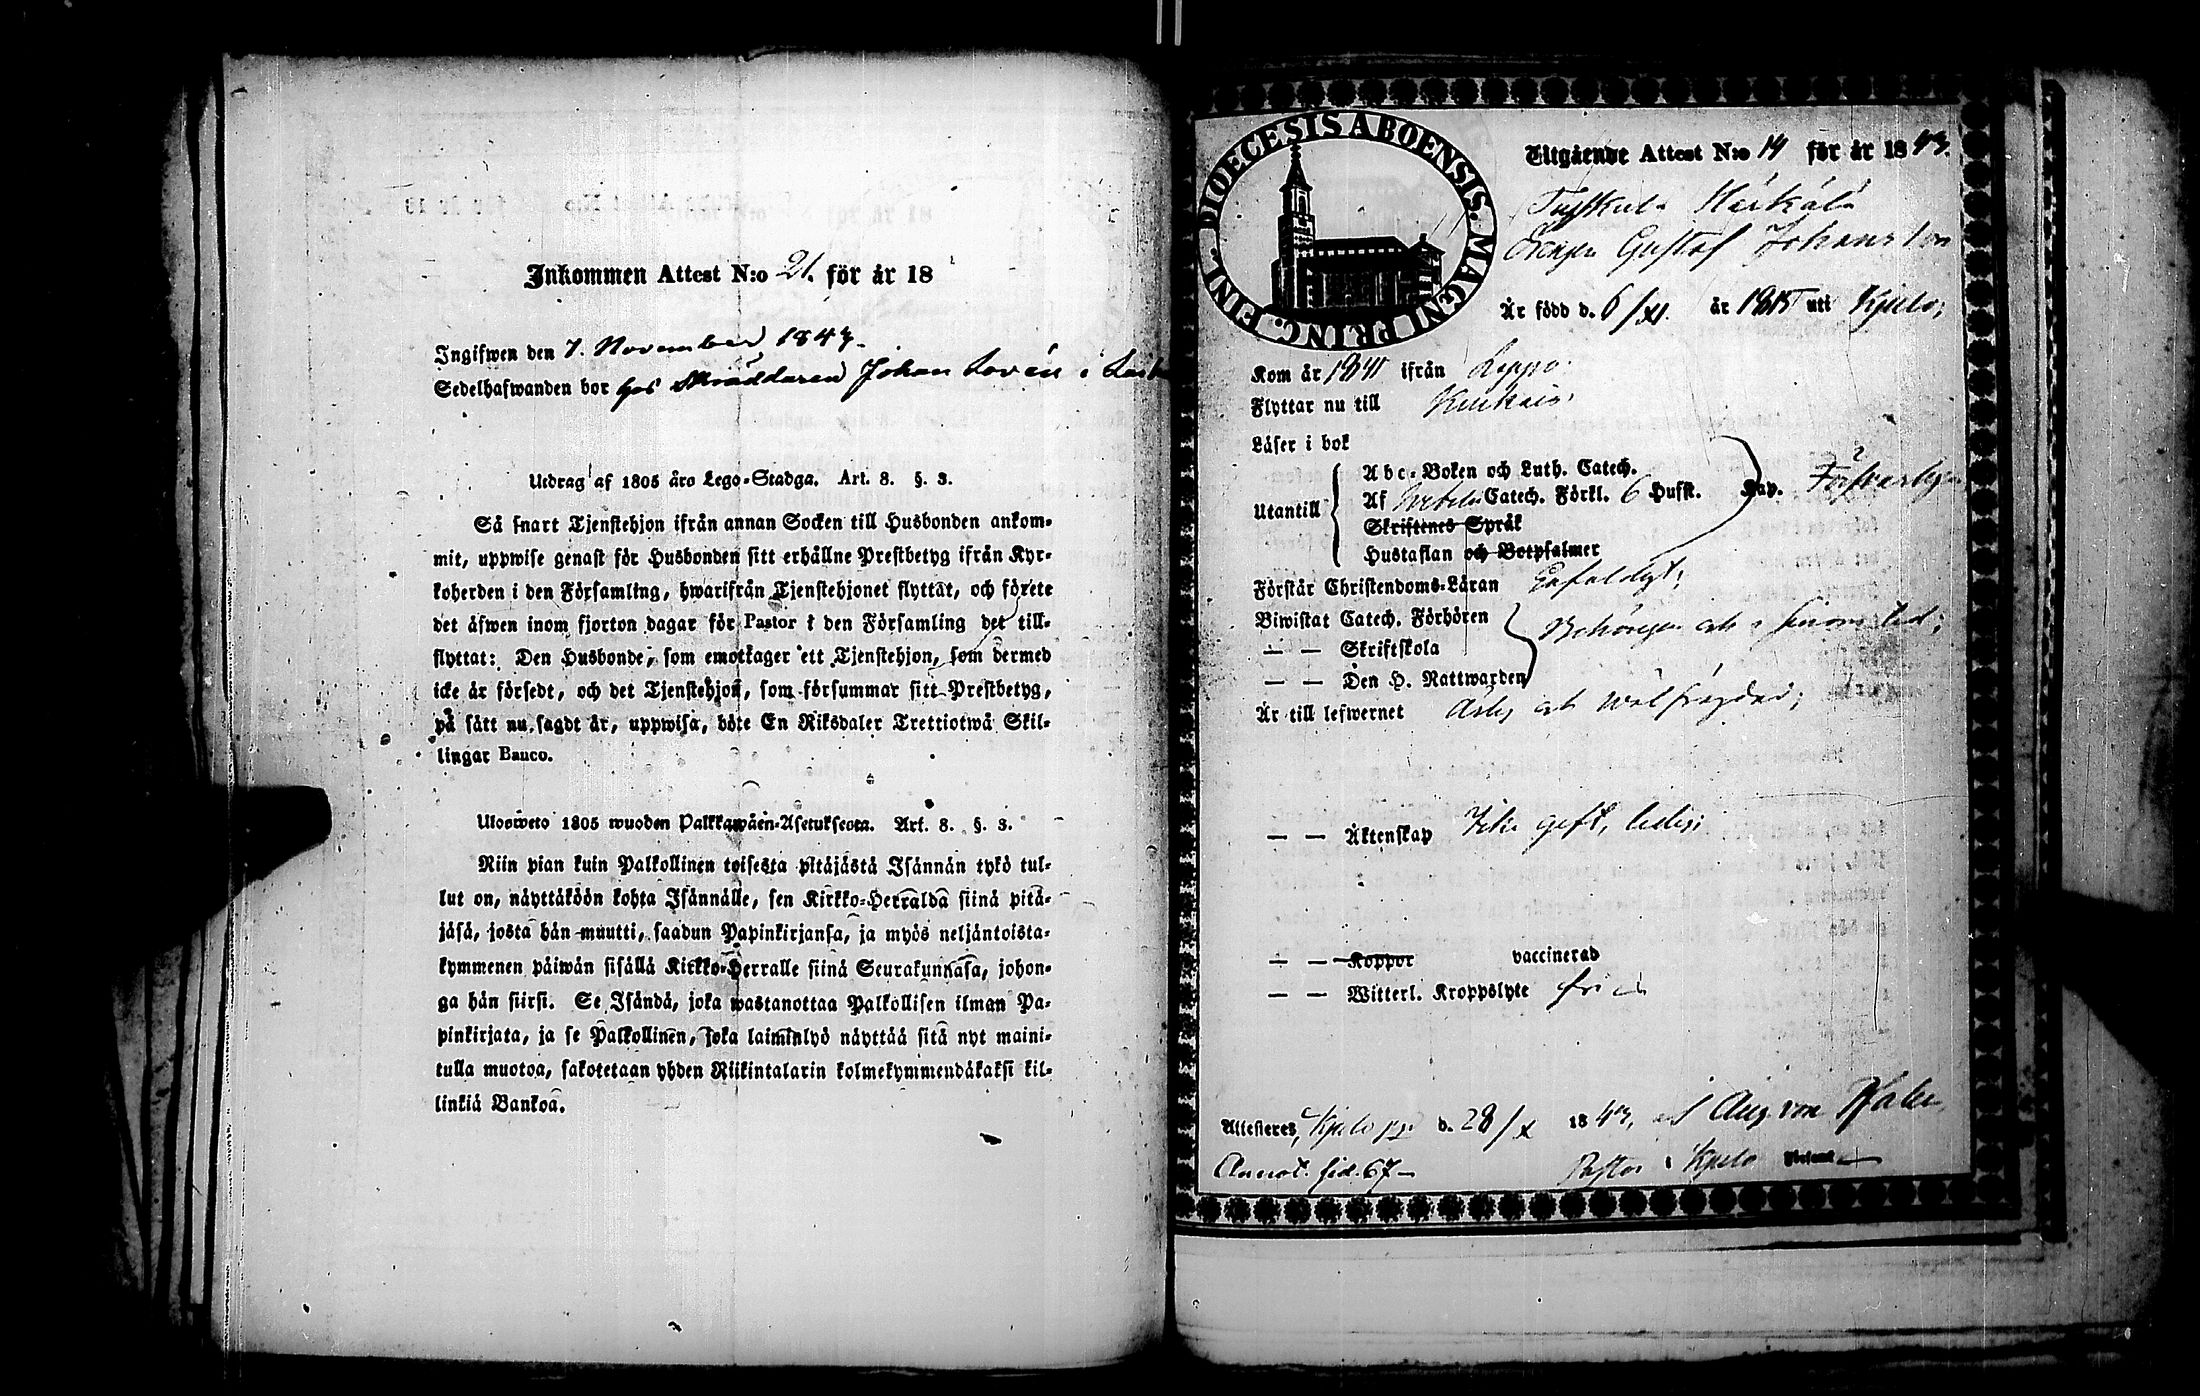 Inkommen Attest N:o 21. för år 18
Ingifwen den 7. November 1843.
Sedelhafwanden bor hos Skräddaren Johan Lovén i
Utdrag af 1805 års Lego-Stadga. Art. 8. §. 3.
Så snart Tjenstehjon ifrån annan Socken till Husbonden ankom-
mit, uppwise genast för Husbonden sitt erhållne Prestbetyg ifrån Kyr-
koherden i den Församling, hwarifrån Tjenstehjonet flyttat, och förete
det äfwen inom fjorton dagar för Pastor i den Församling det till-
flyttat: Den Husbonde, som emottager ett Tjenstehjon, som dermed
icke är försedt, och det Tjenstehjon, som försummar sitt Prestbetyg,
på sätt nu sagdt är, uppwisa, böte En Riksdaler Trettiotwå Skil-
lingar Banco.
Uloswetö 1805 wuoden Palkkawäen-Asetuksesta. Art. 8. §. 3.
Niin pian kuin Palkollinen toisesta pitäjästä Isännän tykö tul-
lut on, näyttäköön kohta Isännälle, sen Kirkko-Herralda siinä pitä-
jäsä, josta hän muutti, saadun Papinkirjansa, ja myös neljäntoista-
kymmenen päiwän sisällä Kirkko-Herralle siinä Seurakunnasa, johon-
ga hän siirsi. Se Isändä, joka wastanottaa Palkollisen ilman Pa-
pinkirjata, ja se Palkollinen, joka laiminlyö näyttää sitä nyt maini-
tulla muotoa, sakotetaan yhden Riikintalarin kolmekymmendäkaksi kil-
linkiä Bankoa.
DIOECESIS ABOENSIS. MAGNI PRINC. FINL.
Utgående Attest N:o 14 för år 1843.
Härkälä
Drengen Gustaf Johansson
Är född d. 6/XI. år 1815 uti Kjulo;
Kom år 1841 ifrån Loppo
Flyttar nu till
Läser i bok
Abc-Boken och Luth. Catech.
Utantill Af Catech. Förkl. 6 Hufst. Kap. Försvarligen
Skriftenes Språk
Hustaflan och Botpsalmer
Förstår Christendoms-Läran Enfaldigt;
Biwistat Catech. Förhören
— — Skriftskola Behörigen och i sinom tid;
— — Den H. Nattwarden
Är till lefwernet Ärlig och wälfrägdad;
— — Äktenskap Icke gift, ledig;
— — Koppor vaccinerad
— — Witterl. Kroppslyte fri
Attesteras, Kjulo d. 28/X 1843, Aug. von Pfaler
Annot. sid. 67 Pastor i Kjulo